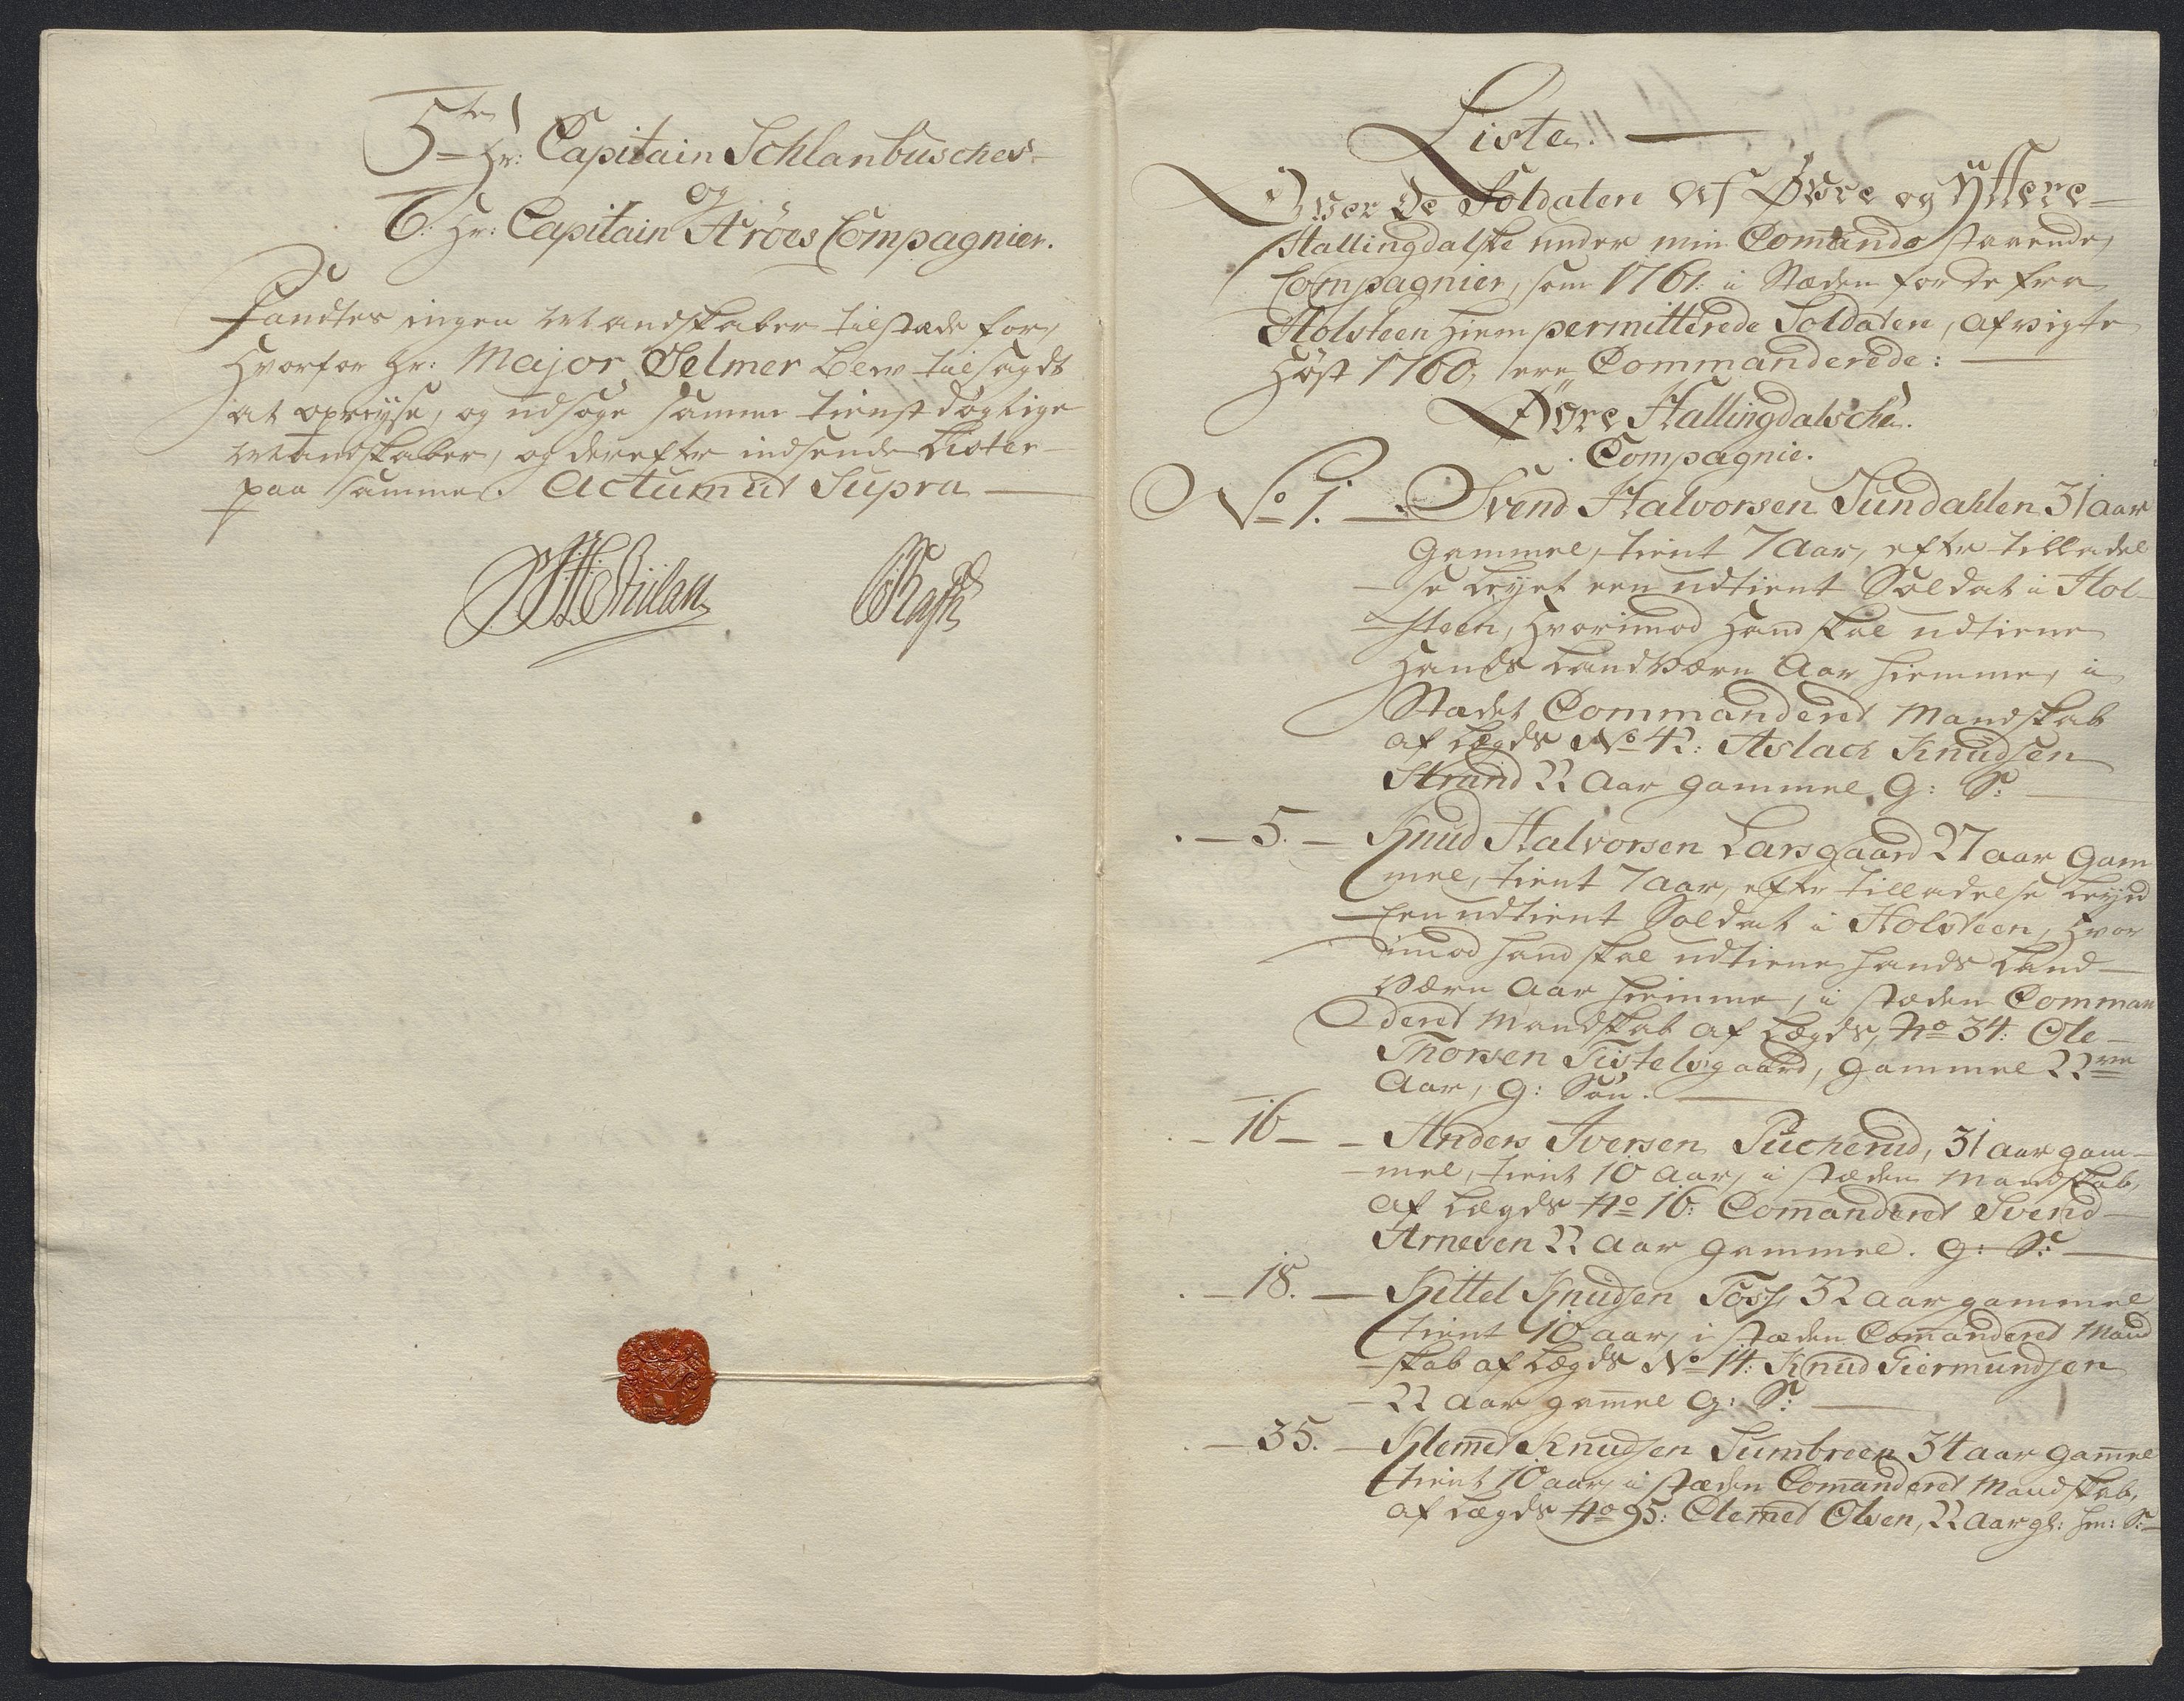 5te Hr: Capitain Schlanbusches
og
6: Hr: Capitain Ströes Compagnier.
Fandtes ingen Mandskaber tilstæde for,
hvorfor Hr: Major Selmer blev tilsagdt
at opreyse, og udsøge samme tienstdøgtige
Mandskaber, og derefter indsende Lister
paa samme. Actum ut Supra
Liste.
Over De Soldater af Øvre og Yttere
Hallingdalske under min Comando staaende,
Compagnier, som 1761: i Stæden for de fra
Holsteen hiempermitterede Soldater, afvigte
Høst 1760, ere Commanderede:
Øvre Hallingdalsche
Compagnie.
No 1. Svend Halvorsen Sundahlen 31 aar
gammel, tient 7 Aar, efter tilladel
se leyet een udtient Soldat i Hol
steen, hvorimod hand skal udtiene
hands Landværn Aar hiemme, i
Stædet Commanderet Mandskab
af Lægds No 42: Aslach Knudsen
Strand 22 Aar gammel, G: S:
5. Knud Halvorsen Larsgaard 27 aar gam
mel, tient 7 aar, efter tilladelse leyed
een udtient Soldat i Holsteen, hvor
imod hand skal udtiene hands Land
værn Aar hiemme, i stæden Comman
deret Mandskab af Lægds, No 34: Ole
Thorsen Tistelsgaard, gammel 22ve
Aar, G: Søn.
16 Anders Iversen Pucherud, 31 aar gam
mel, tient 10 Aar, i stæden Mandskab,
af Lægds No 16: Comanderet Svend
Arnesen 22 Aar gammel. G: S:
18. Kittel Knudsen Foss, 32 aar gammel
tient 10 aar, i stæden Comanderet Mand
skab af Lægds No 14: Knud Giermundsen
22 Aar gamel G: S:
35. Klemet Knudsen Sumbreen 34 aar gamel
tient 10 aar, i stæden Comanderet Mandskab,
af Lægds No 95: Clemet Olsen, 22 Aar gl: S: